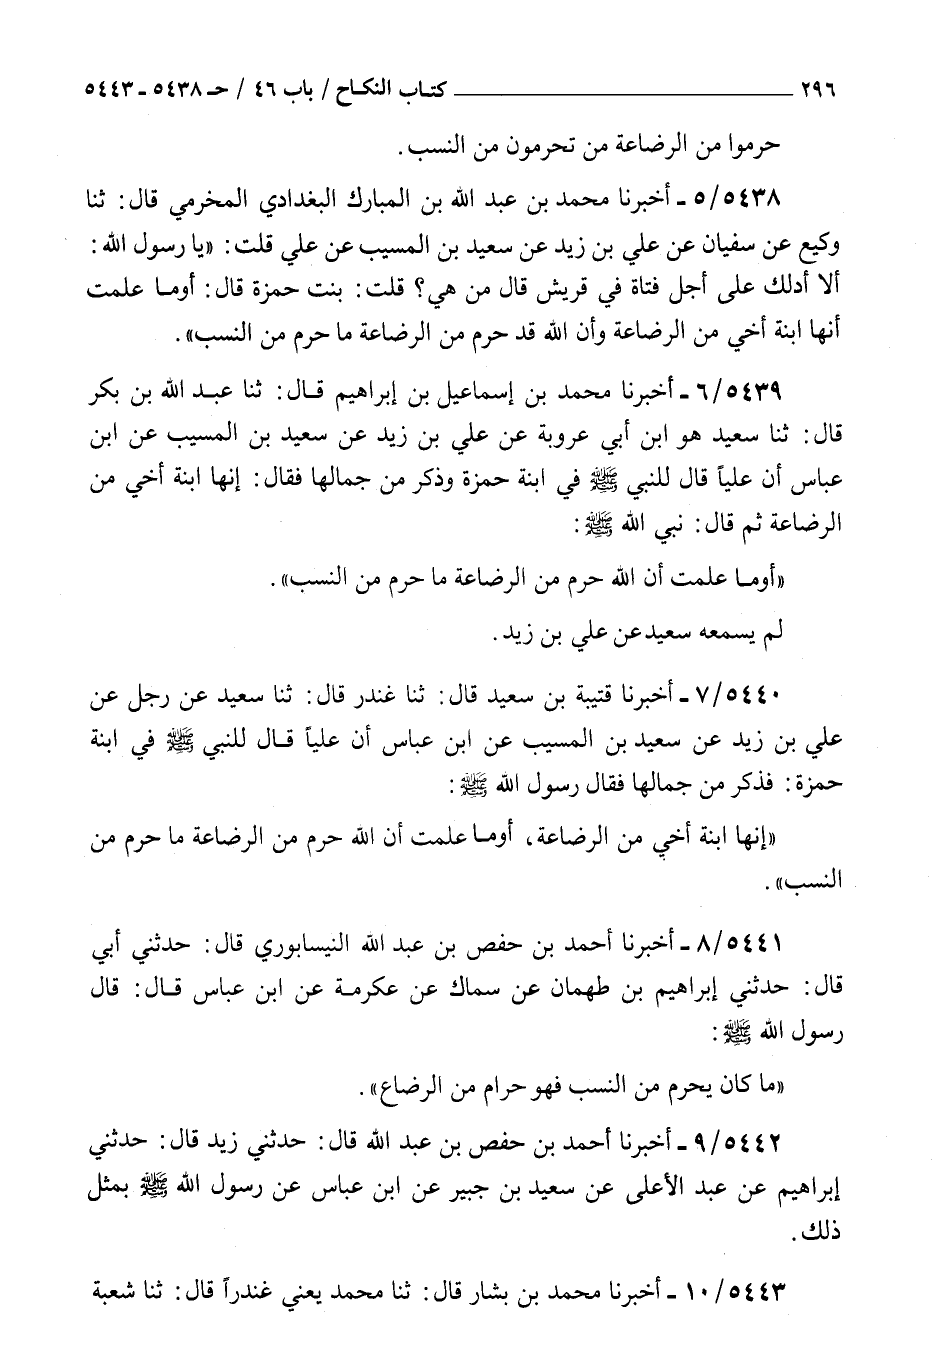 ٢٩٦ ــــــــ كتاب النكاح / باب ٤٦ / حـ ٥٤٣٨ ـ ٥٤٤٣
حرموا من الرضاعة من تحرمون من النسب.
٥/٥٤٣٨ ـ أخبرنا محمد بن عبد الله بن المبارك البغدادي المخرمي قال: ثنا
وكيع عن سفيان عن علي بن زيد عن سعيد بن المسيب عن علي قلت: «يا رسول الله:
ألا أدلك على أجل فتاة في قريش قال من هي؟ قلت: بنت حمزة قال: أوما علمت
أنها ابنة أخي من الرضاعة وأن الله قد حرم من الرضاعة ما حرم من النسب».
٦/٥٤٣٩ ـ أخبرنا محمد بن إسماعيل بن إبراهيم قال: ثنا عبد الله بن بكر
قال: ثنا سعيد هو ابن أبي عروبة عن علي بن زيد عن سعيد بن المسيب عن ابن
عباس أن علياً قال للنبي ﷺ في ابنة حمزة وذكر من جمالها فقال: إنها ابنة أخي من
الرضاعة ثم قال: نبي الله ﷺ:
«أوما علمت أن الله حرم من الرضاعة ما حرم من النسب».
لم يسمعه سعيد عن علي بن زيد.
٧/٥٤٤٠ ـ أخبرنا قتيبة بن سعيد قال: ثنا غندر قال: ثنا سعيد عن رجل عن
علي بن زيد عن سعيد بن المسيب عن ابن عباس أن علياً قال للنبي ﷺ في ابنة
حمزة: فذكر من جمالها فقال رسول الله ﷺ:
«إنها ابنة أخي من الرضاعة، أوما علمت أن الله حرم من الرضاعة ما حرم من
النسب».
٨/٥٤٤١ ـ أخبرنا أحمد بن حفص بن عبد الله النيسابوري قال: حدثني أبي
قال: حدثني إبراهيم بن طهمان عن سماك عن عكرمة عن ابن عباس قال: قال
رسول الله ﷺ:
«ما كان يحرم من النسب فهو حرام من الرضاع».
٩/٥٤٤٢ ـ أخبرنا أحمد بن حفص بن عبد الله قال: حدثني زيد قال: حدثني
إبراهيم عن عبد الأعلى عن سعيد بن جبير عن ابن عباس عن رسول الله ﷺ بمثل
ذلك.
١٠/٥٤٤٣ ـ أخبرنا محمد بن بشار قال: ثنا محمد يعني غندراً قال: ثنا شعبة